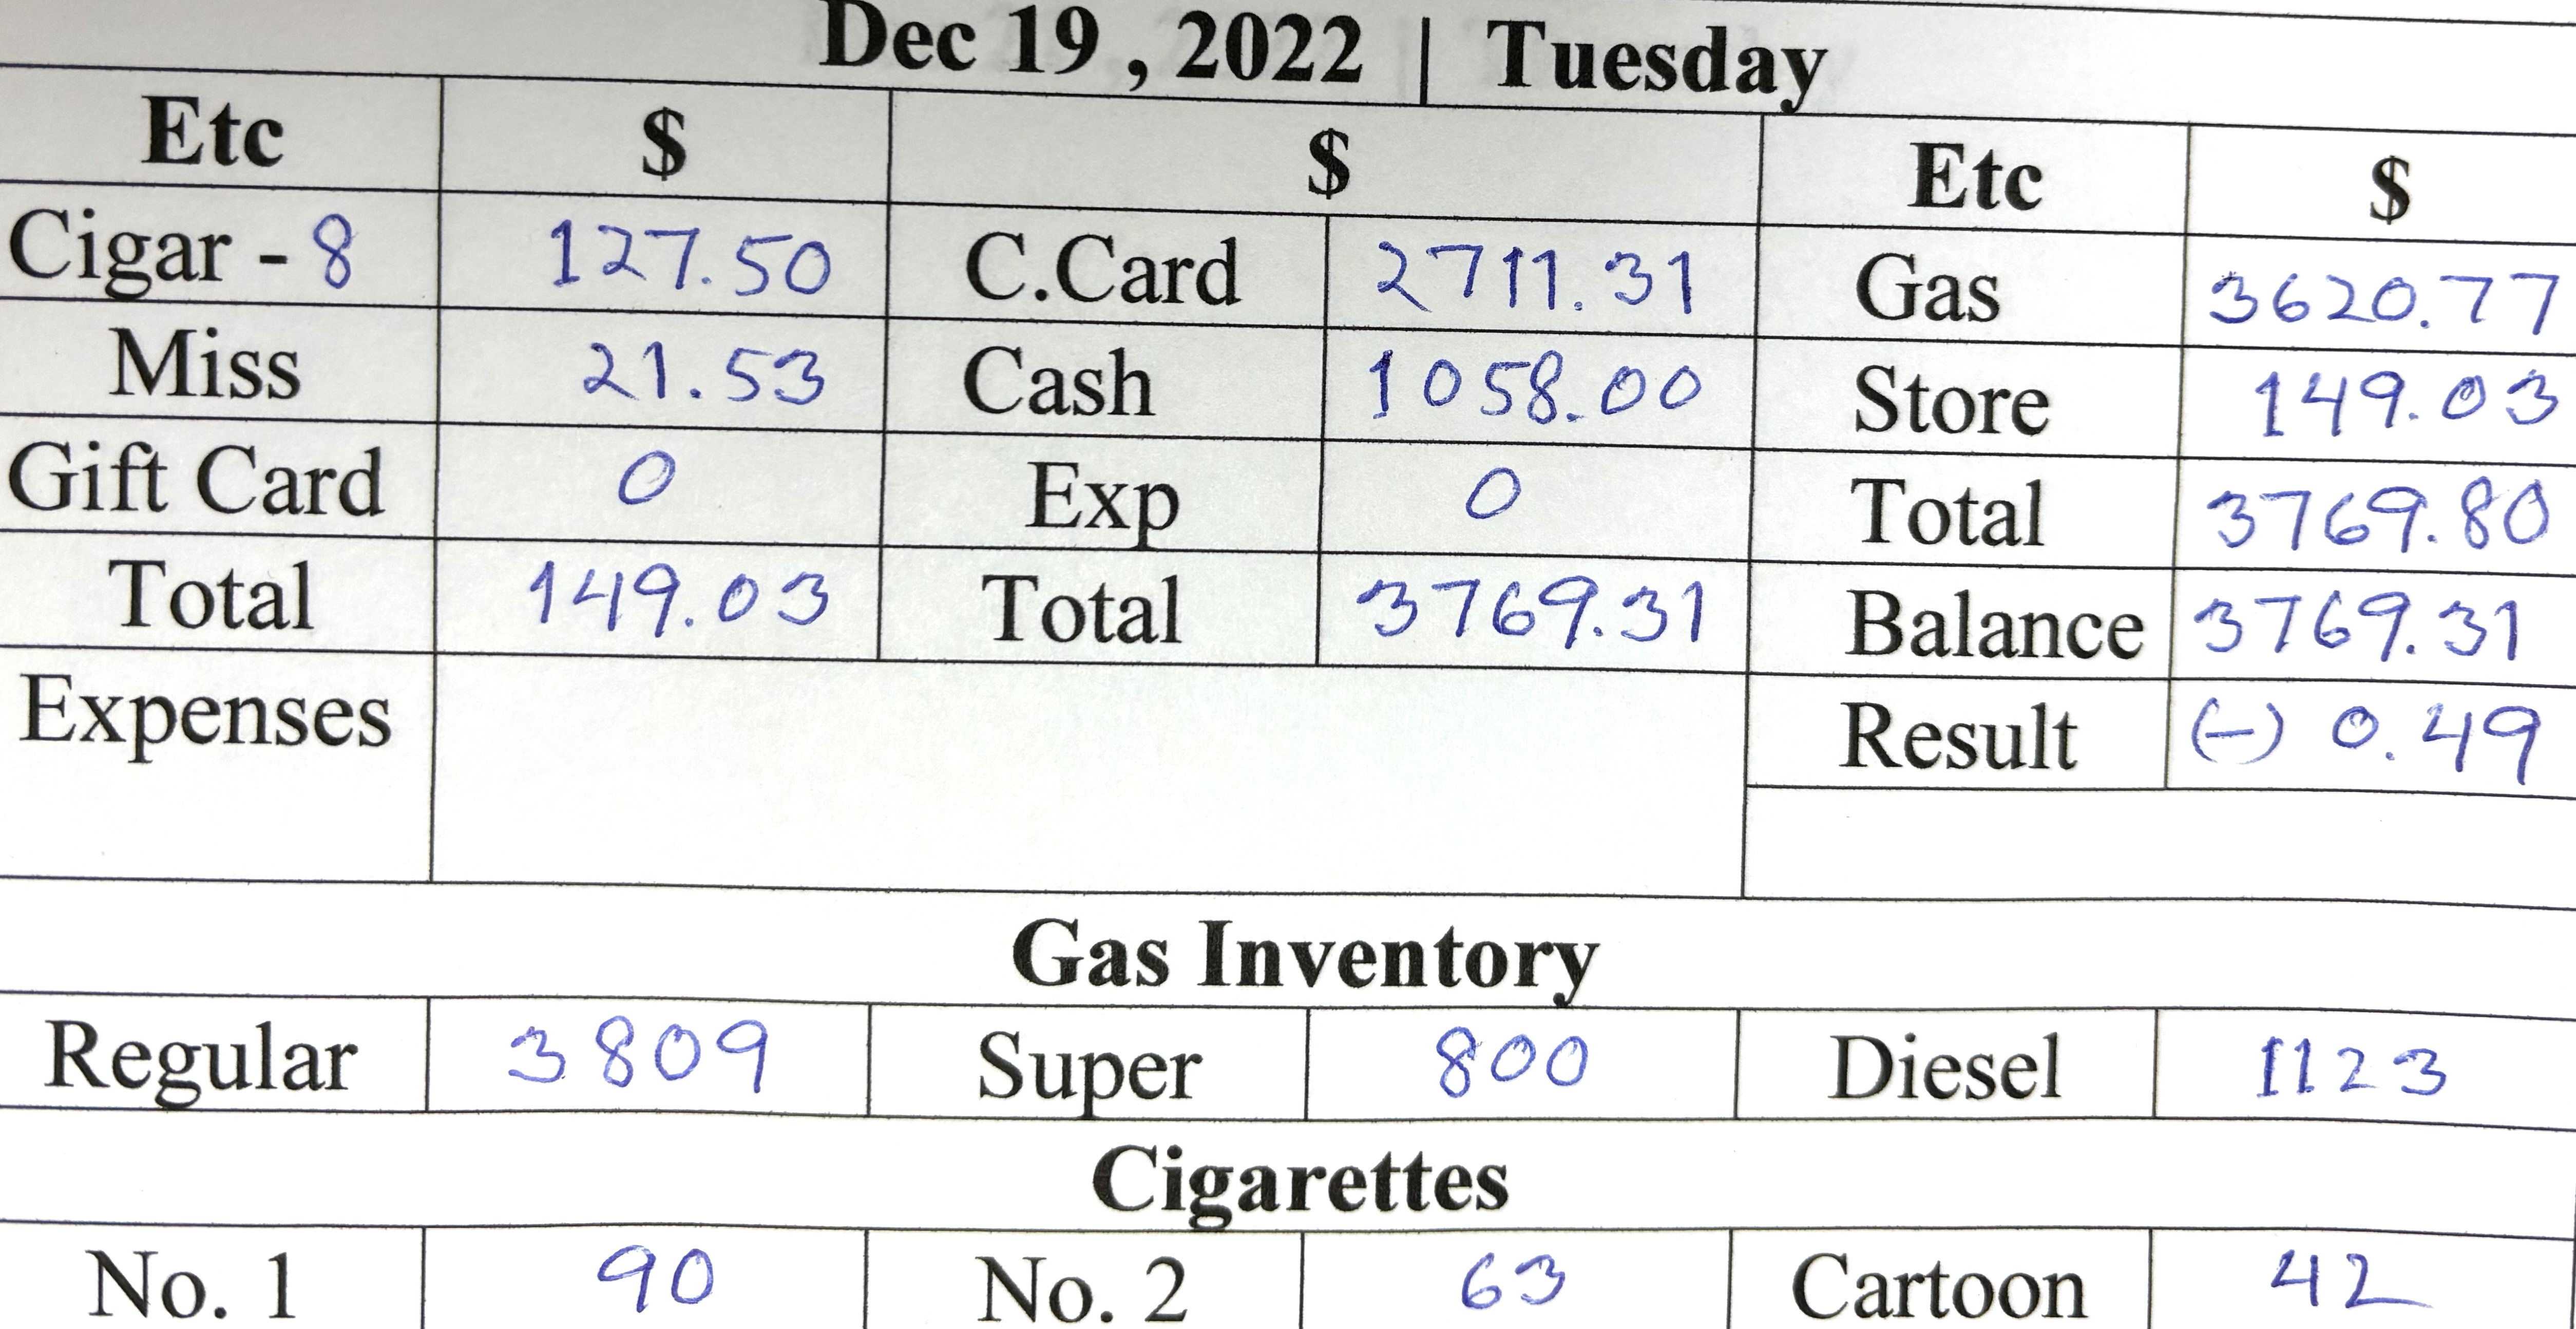 Dec 19 , 2022 | Tuesday
Etc $ $ Etc $
Cigar - 8 127.50 C.Card 2711.31 Gas 3620.77
Miss 21.53 Cash 1058.00 Store 149.03
Gift Card 0 Exp 0 Total 3769.80
Total 149.03 Total 3769.31 Balance 3769.31
Expenses Result (-) 0.49
Gas Inventory
Regular 3809 Super 800 Diesel 1123
Cigarettes
No. 1 90 No. 2 63 Cartoon 42